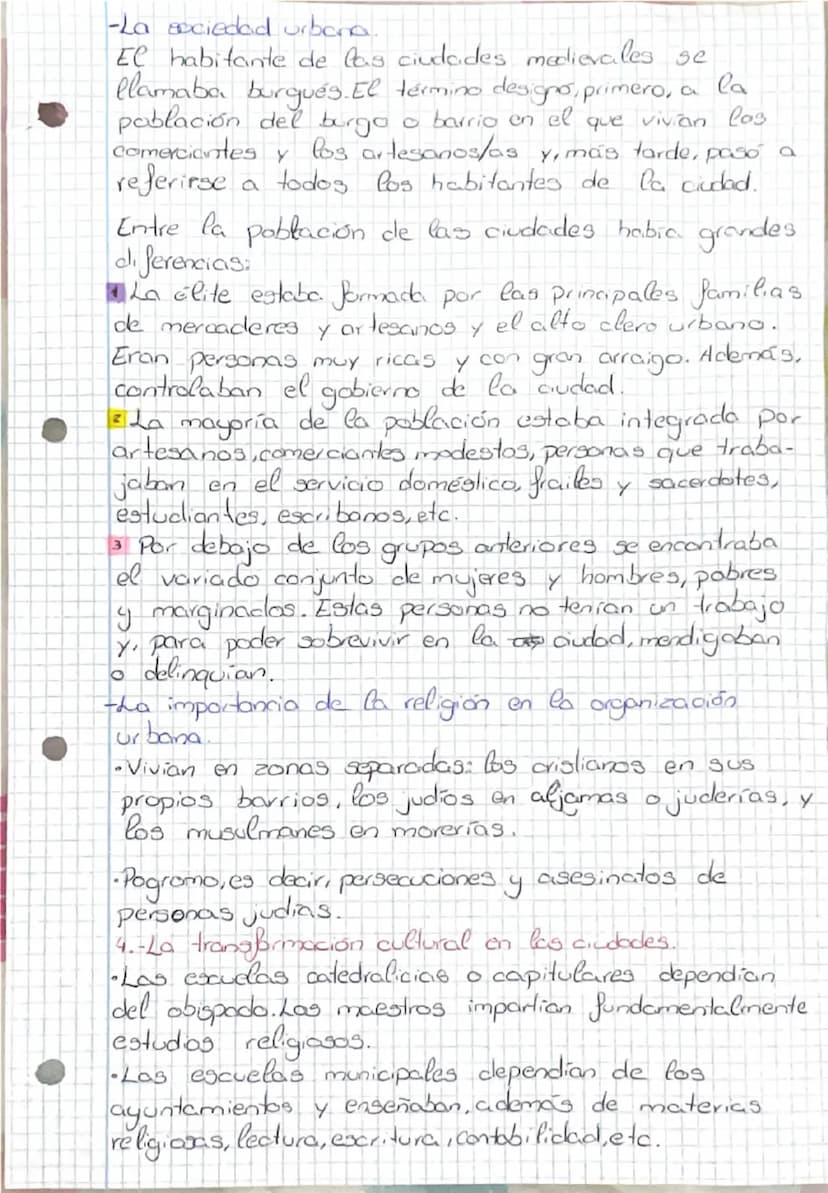 -La sociedad urbana.
El habitante de las ciudades medievales se
llamaba burgués. El término designó, primero, a la
población del burgo o barrio en el que vivían los
comerciantes y los artesanos/as y, más tarde, pasó a
referirse a todos los habitantes de la ciudad.
Entre la población de las ciudades había grandes
diferencias:
1 La élite estaba formada por las principales familias
de mercaderes y artesanos y el alto clero urbano.
Eran personas muy ricas y con gran arraigo. Además,
controlaban el gobierno de la ciudad.
2 La mayoría de la población estaba integrada por
artesanos, comerciantes modestos, personas que traba-
jaban en el servicio doméstico, frailes y sacerdotes,
estudiantes, escribanos, etc.
3 Por debajo de los grupos anteriores se encontraba
el variado conjunto de mujeres y hombres, pobres
y marginados. Estas personas no tenían un trabajo
y, para poder sobrevivir en la ciudad, mendigaban
o delinquían.
-La importancia de la religión en la organización
urbana.
·Vivían en zonas separadas: los cristianos en sus
propios barrios, los judíos en aljamas o juderías, y
los musulmanes en morerías.
·Pogromo, es decir, persecuciones y asesinatos de
personas judías.
4.-La transformación cultural en las ciudades.
·Las escuelas catedralicias o capitulares dependían
del obispado. Los maestros impartían fundamentalmente
estudios religiosos.
·Las escuelas municipales dependían de los
ayuntamientos y enseñaban, además de materias
religiosas, lectura, escritura, contabilidad, etc.